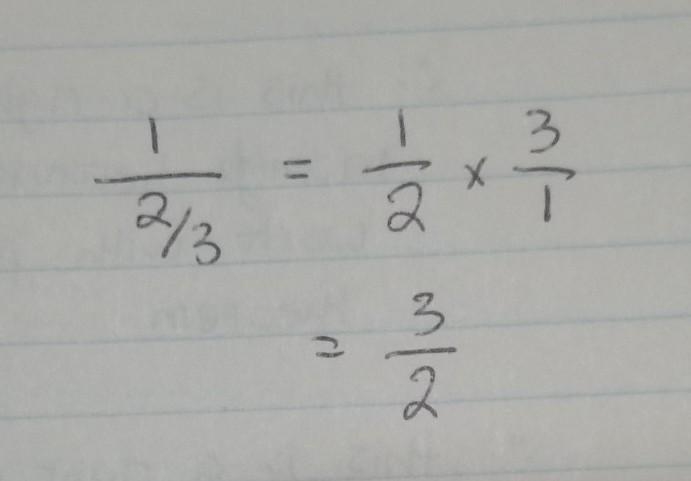 1/(2/3) = 1/2 × 3/1
= 3/2